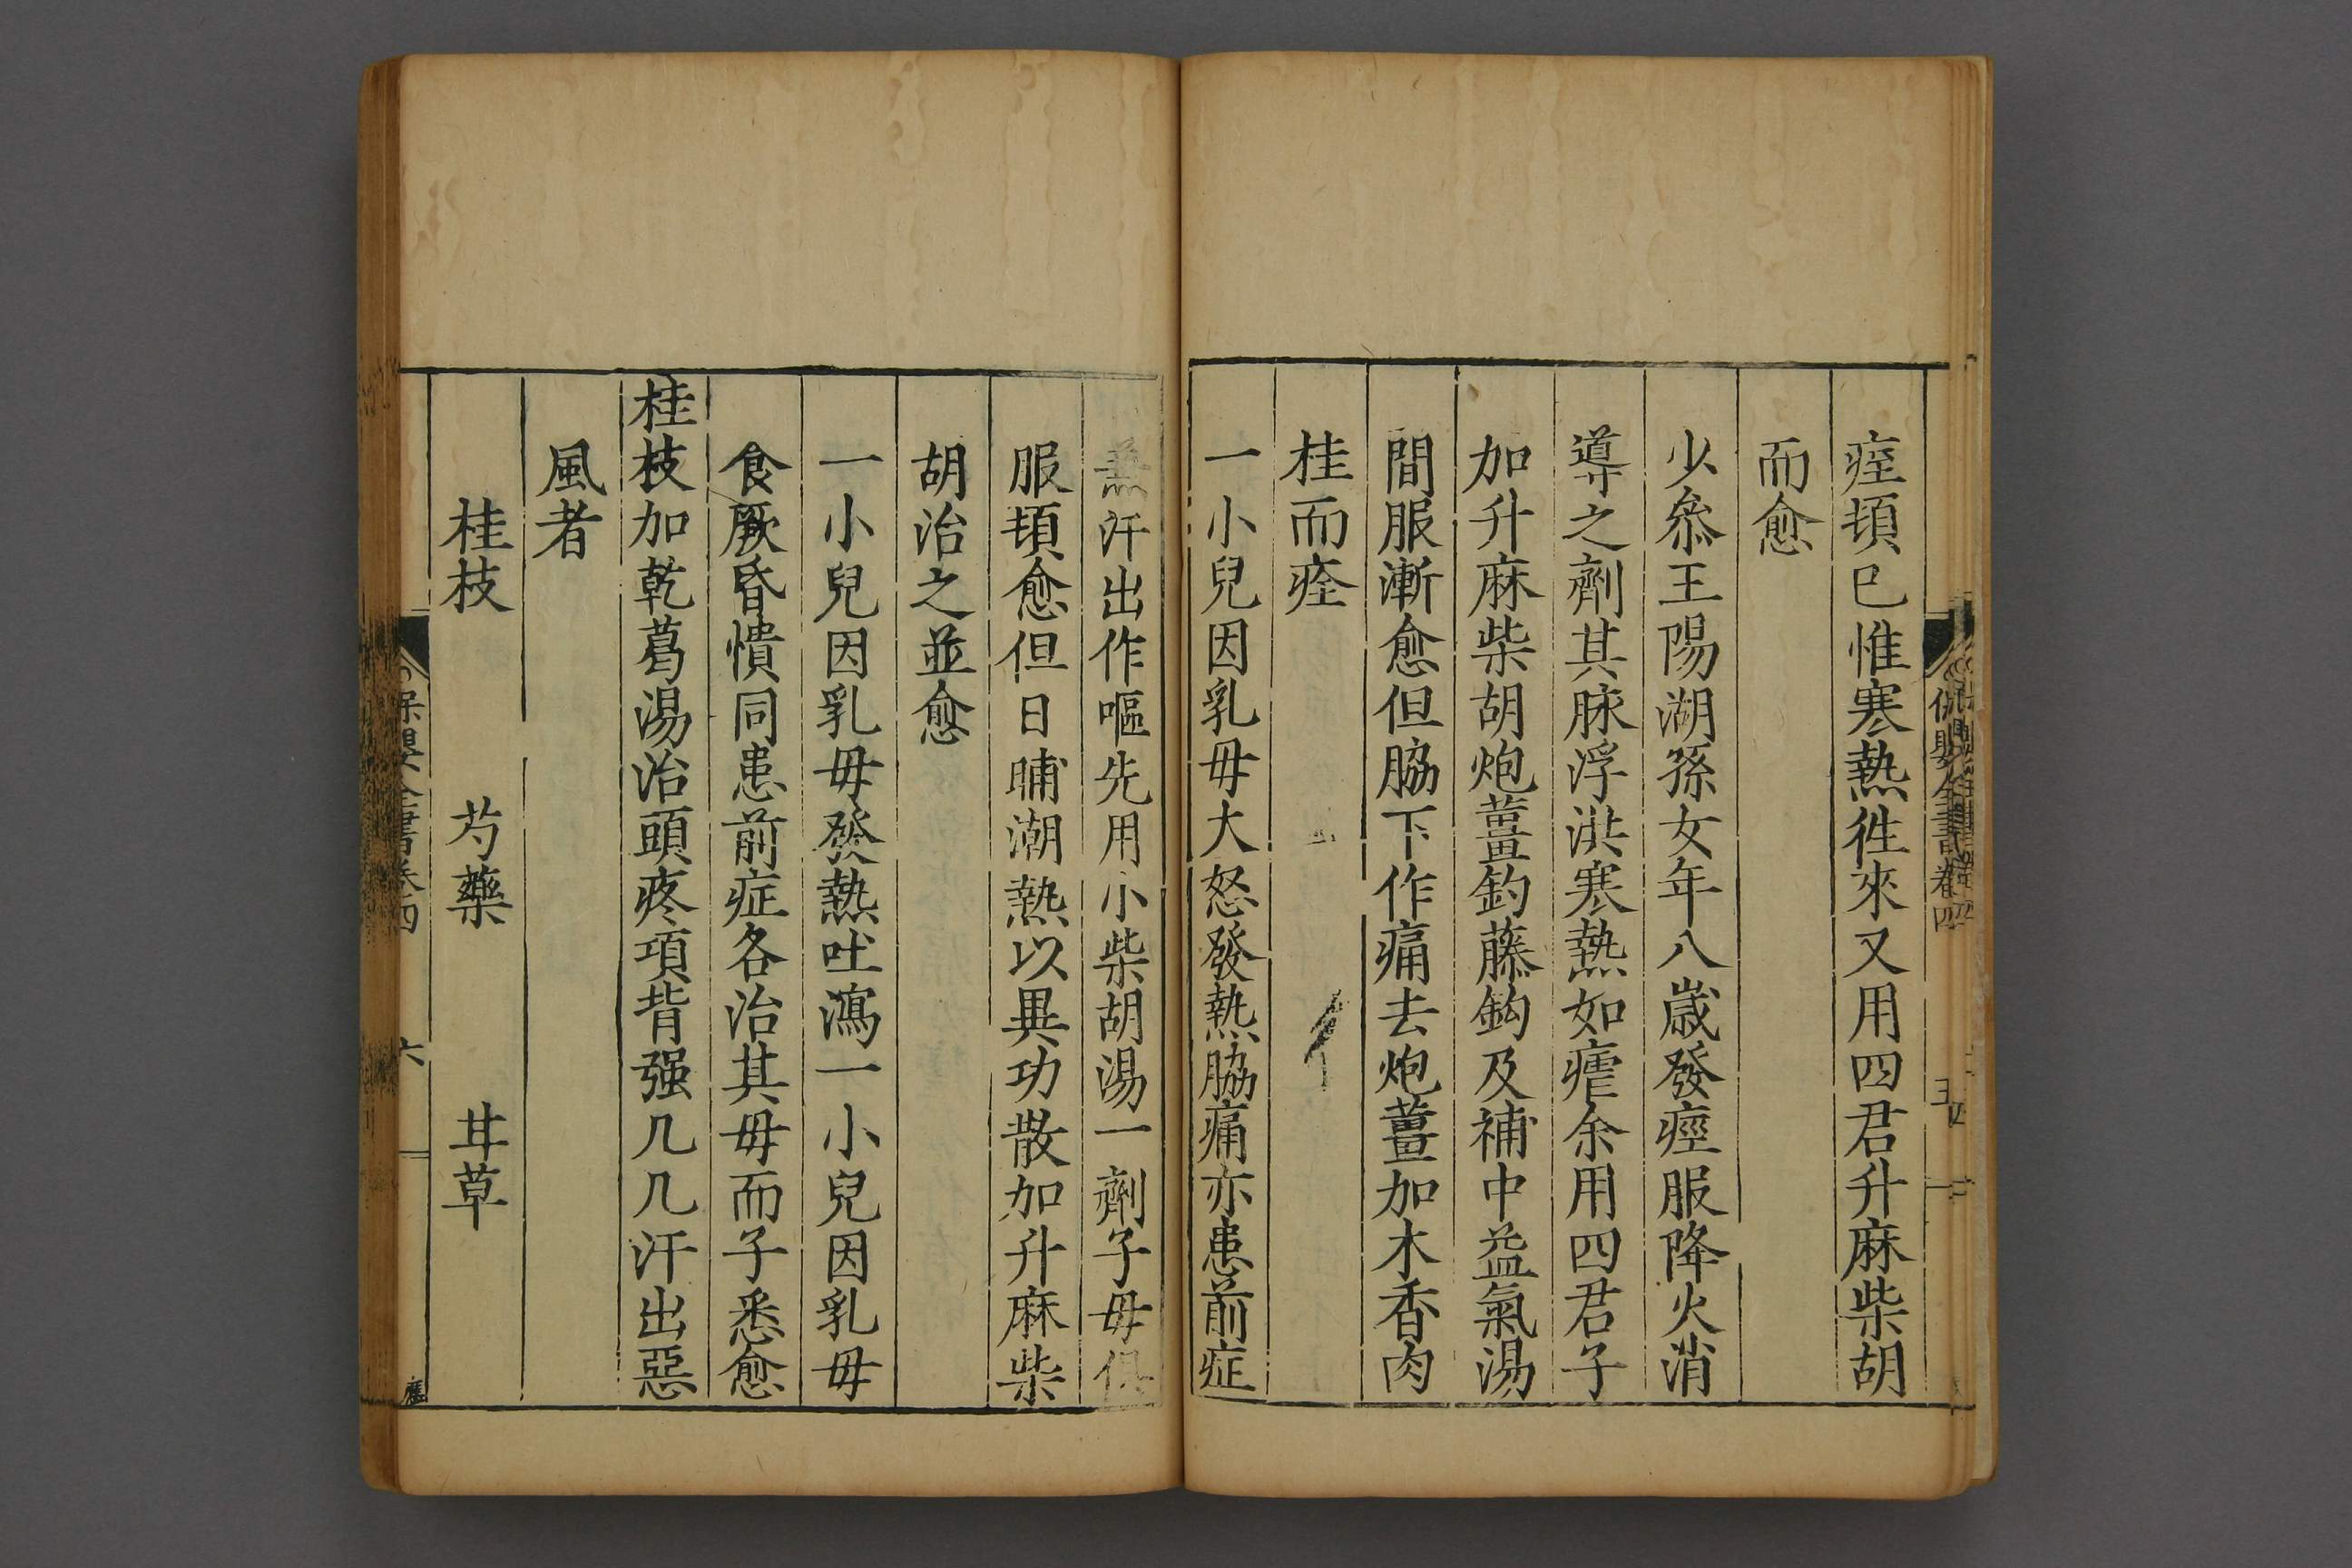 痓頓已惟寒熱徃來又用四君升麻柴胡
而愈
少叅王陽湖孫女年八歲發痙服降火消
導之劑其脉浮洪寒熱如瘧余用四君子
加升麻柴胡炮薑釣藤鈎及補中益氣湯
間服漸愈但脇下作痛去炮薑加木香肉
桂而痊
一小兒因乳母大怒發熱脇痛亦患前症
兼汗出作嘔先用小柴胡湯一劑子母俱
服頓愈但日晡潮熱以異功散加升麻柴
胡治之並愈
一小兒因乳母發熱吐瀉一小兒因乳母
食厥昏憒同患前症各治其母而子悉愈
桂枝加乾葛湯治頭疼項背强几几汗出惡
風者
桂枝 芍藥 甘草
保嬰全書卷四 六